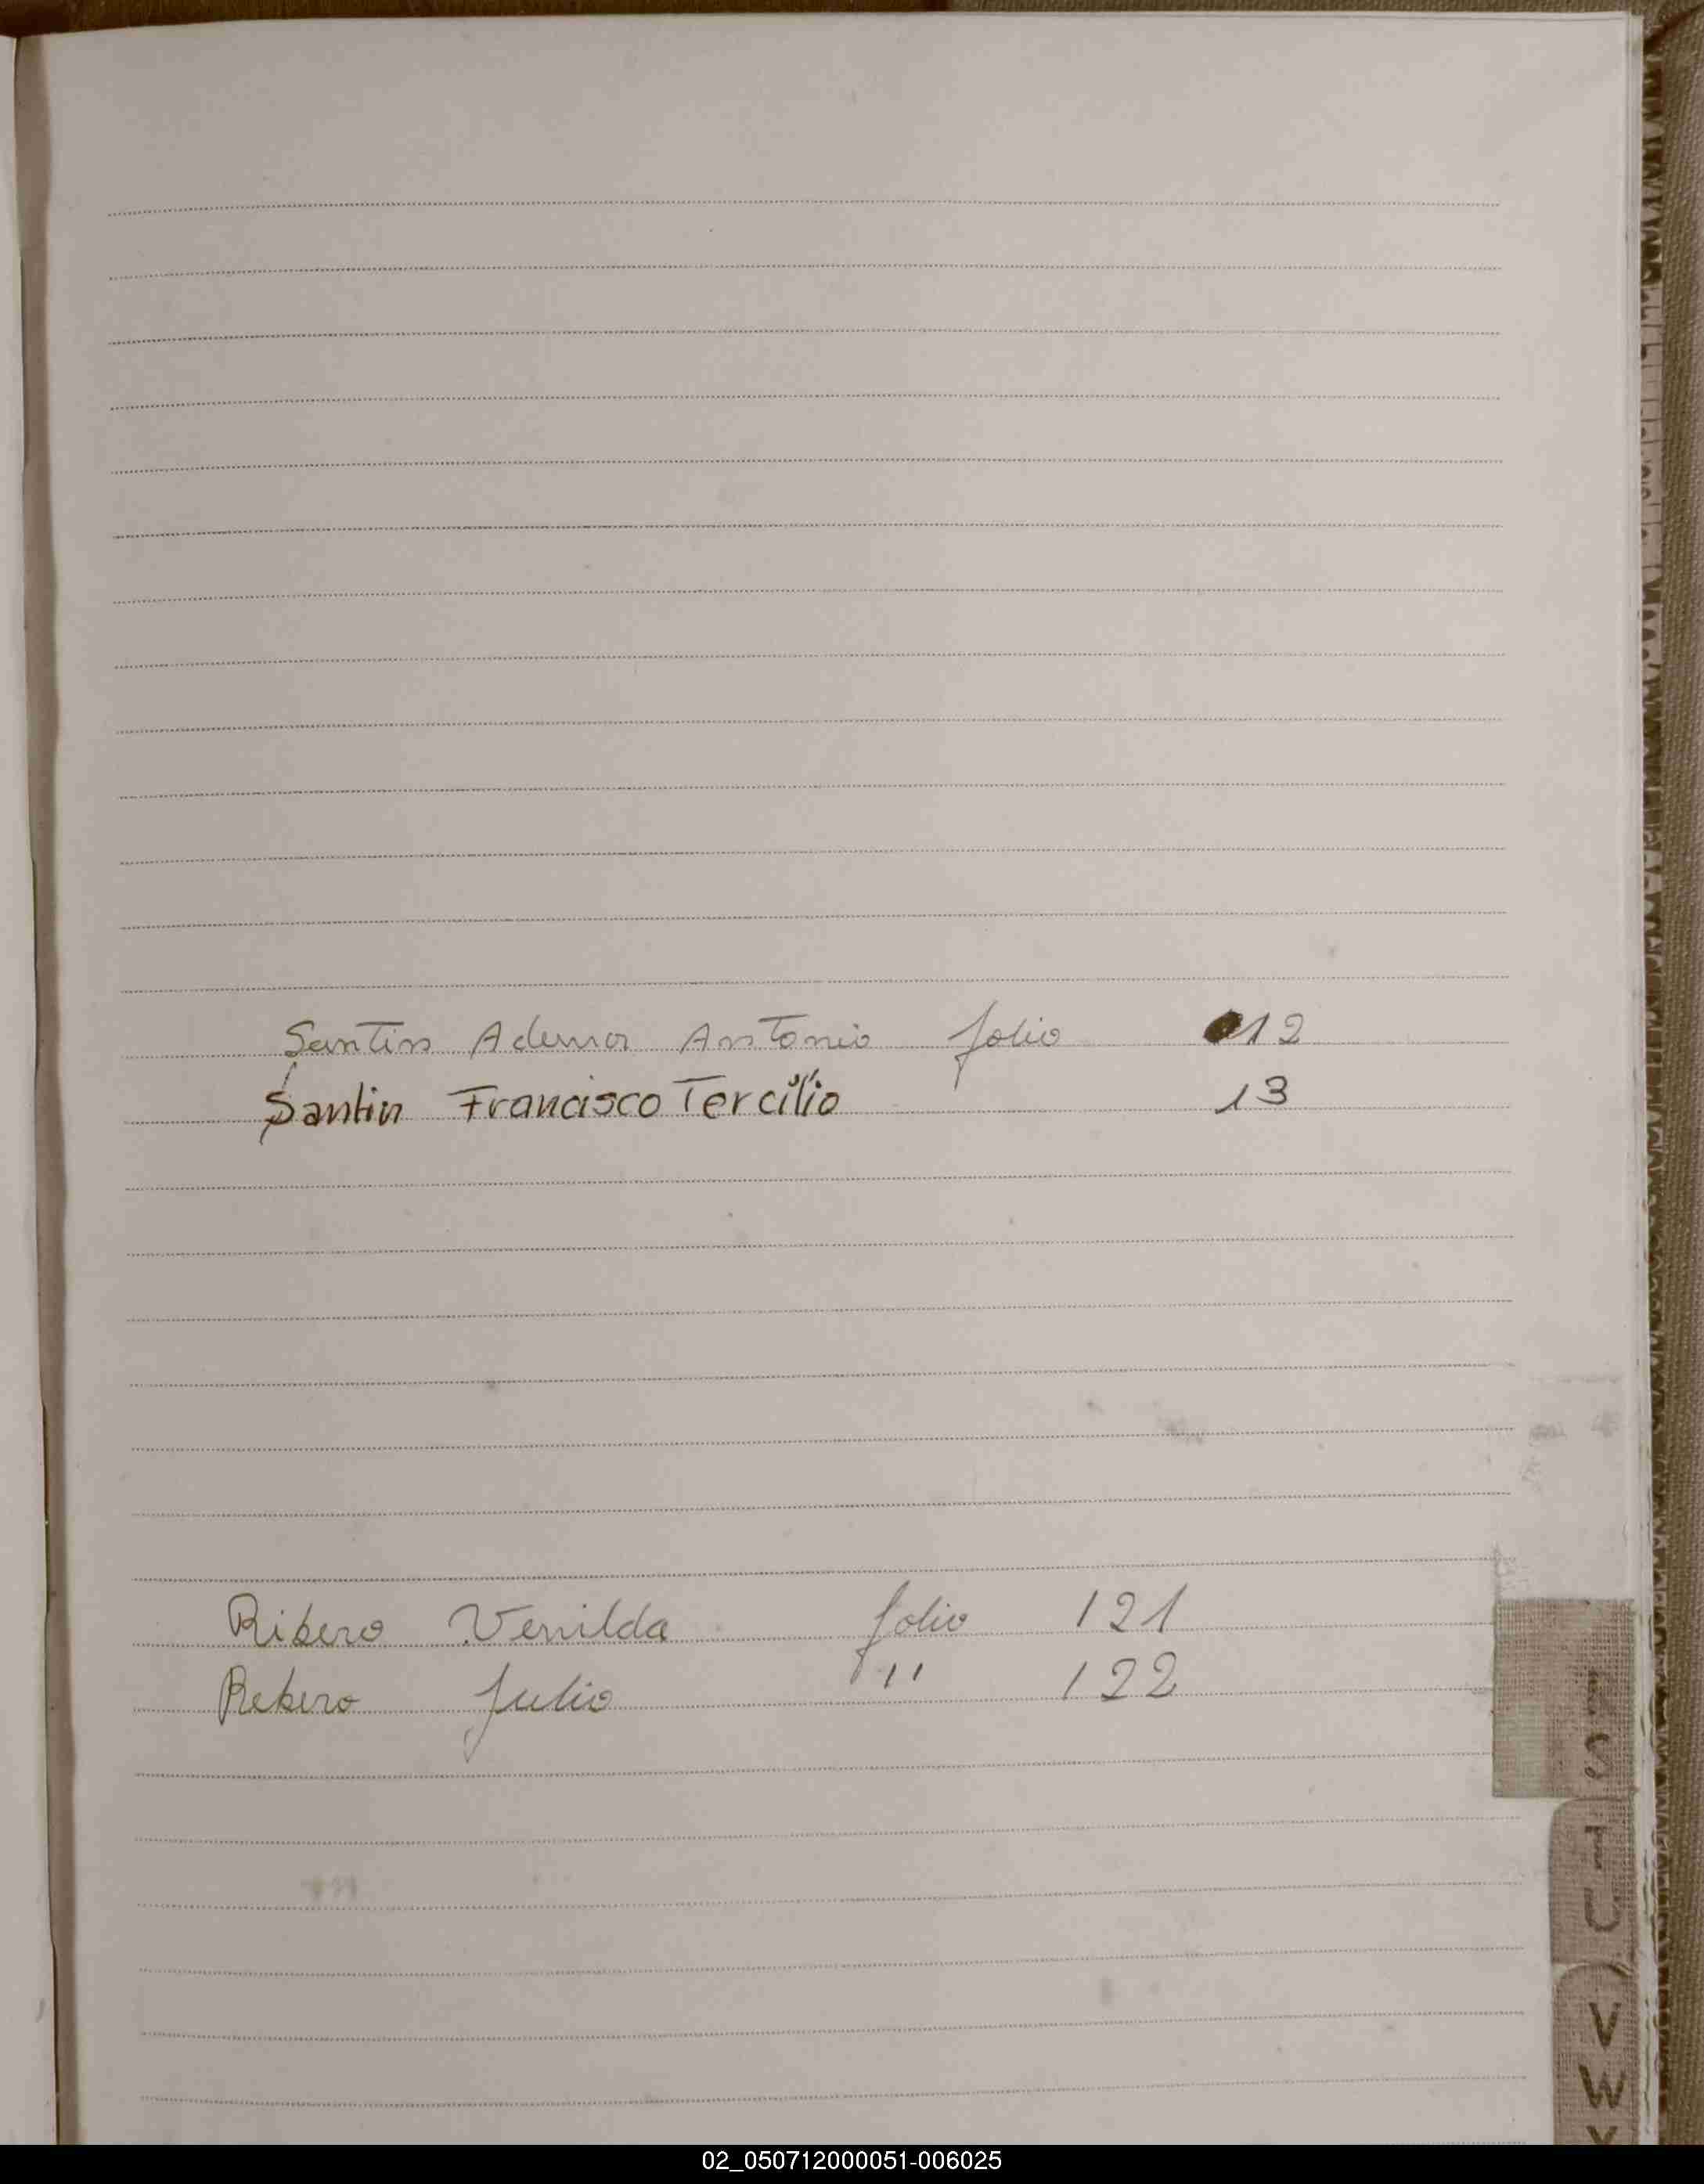 Santin Ademor Antonio folio 12
Santin Francisco Tercilio 13
Ribero Venilda folio 121
Rebero Julio " 122
S
T
U
V
W
02_050712000051-006025